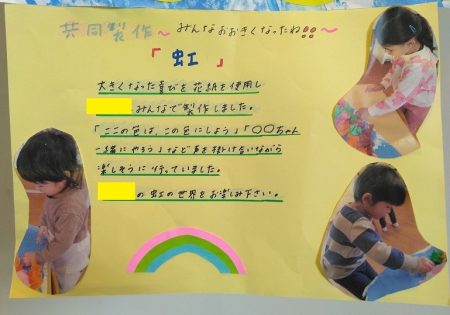 共同製作～みんなおおきくなったね!!～
「虹」
大きくなった喜びを花紙を使用し
みんなで製作しました。
「ここの色は、この色にしよう」「〇〇ちゃん
一緒にやろう」など声を掛け合いながら
楽しそうに行っていました。
の虹の世界をお楽しみ下さい。